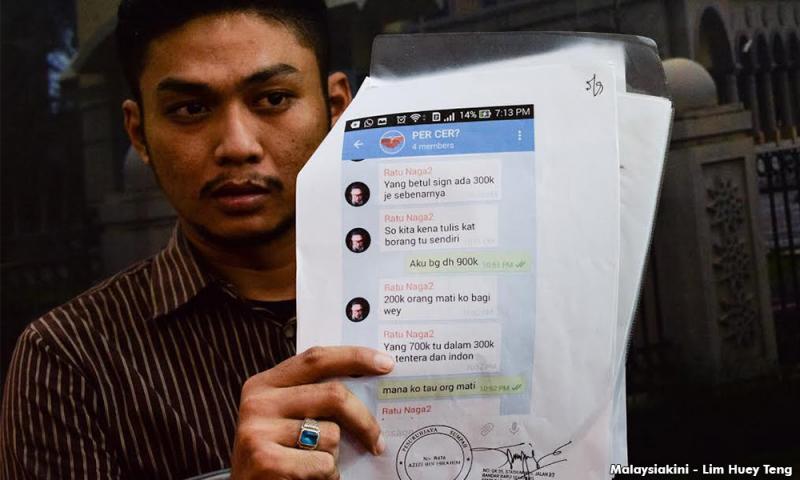 14% 7:13 PM
PER CER?
4 members
Ratu Naga2
Yang betul sign ada 300k
je sebenarnya
Ratu Naga2
So kita kena tulis kat
borang tu sendiri
Aku bg dh 900k 10:51 PM
Ratu Naga2
200k orang mati ko bagi
wey
Ratu Naga2
Yang 700k tu dalam 300k
tentera dan indon
mana ko tau org mati 10:52 PM
Ratu Naga2
PESURUHJAYA SUMPAH
AZIZI BIN IBRAHIM
Malaysiakini - Lim Huey Teng